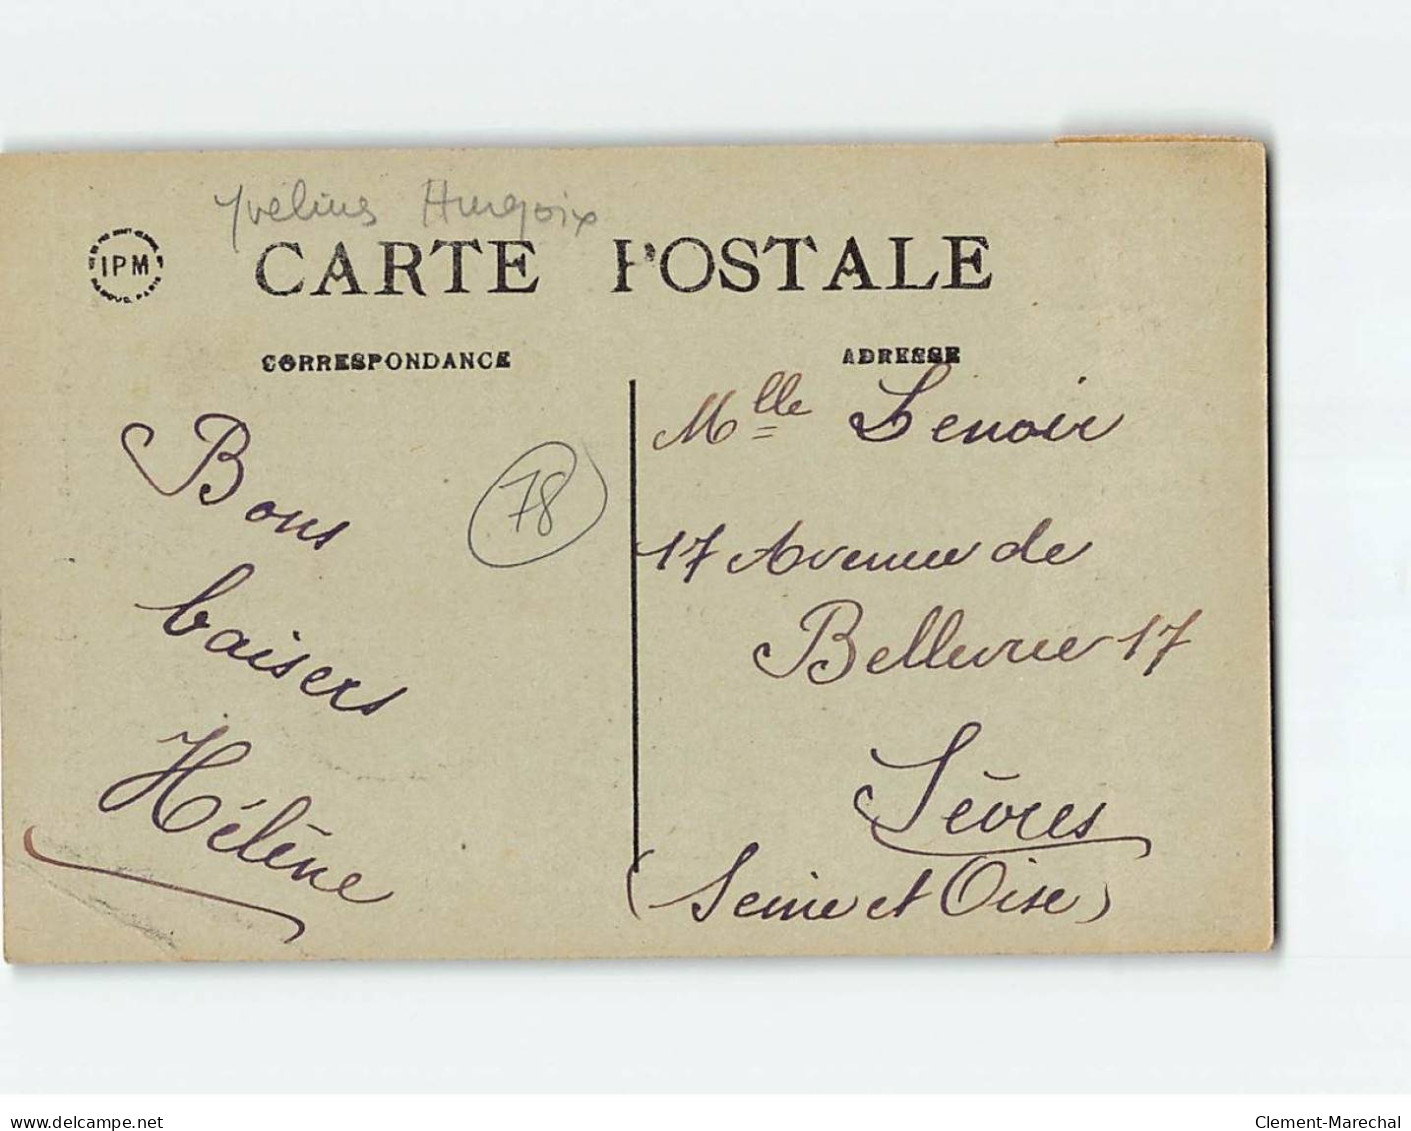 Yvelines Hurepoix
IPM
CARTE POSTALE
CORRESPONDANCE
Bons
baisers
Hélène
78
ADRESSE
Mlle Lenoir
17 Avenue de
Bellevue 17
Sèvres
(Seine et Oise)
www.delcampe.net
Clement-Marechal